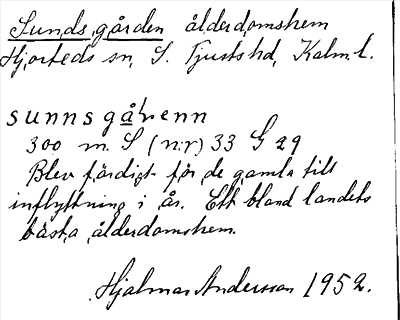 Sundsgården ålderdomshem
Hjorteds sn, S. Tjusts hd, Kalm. l.
sunnsgå`ṛenn
300 m. S (n:r) 33 G 29
Blev färdigt för de gamla till
inflyttning i år. Ett bland landets
bästa ålderdomshem.
Hjalmar Andersson 1952.